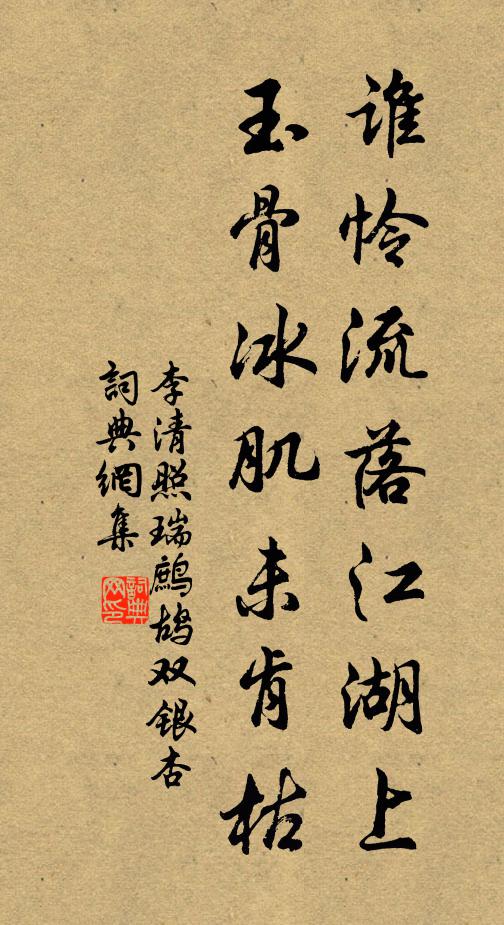 谁怜流落江湖上
玉骨冰肌未肯枯
李清照瑞鷓鴣双银杏
詞典網集
詞典网印